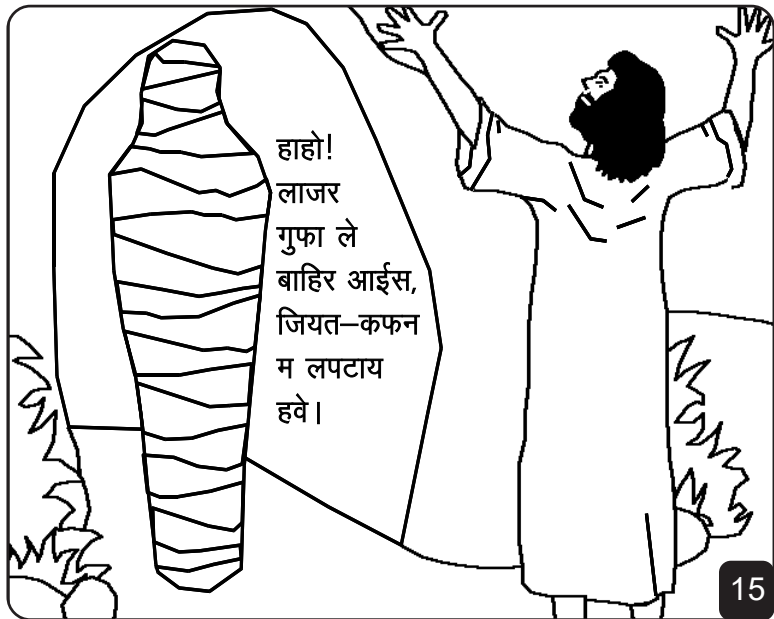 हाहो!
लाजर
गुफा ले
बाहिर आईस,
जियत–कफन
म लपटाय
हवे।
15